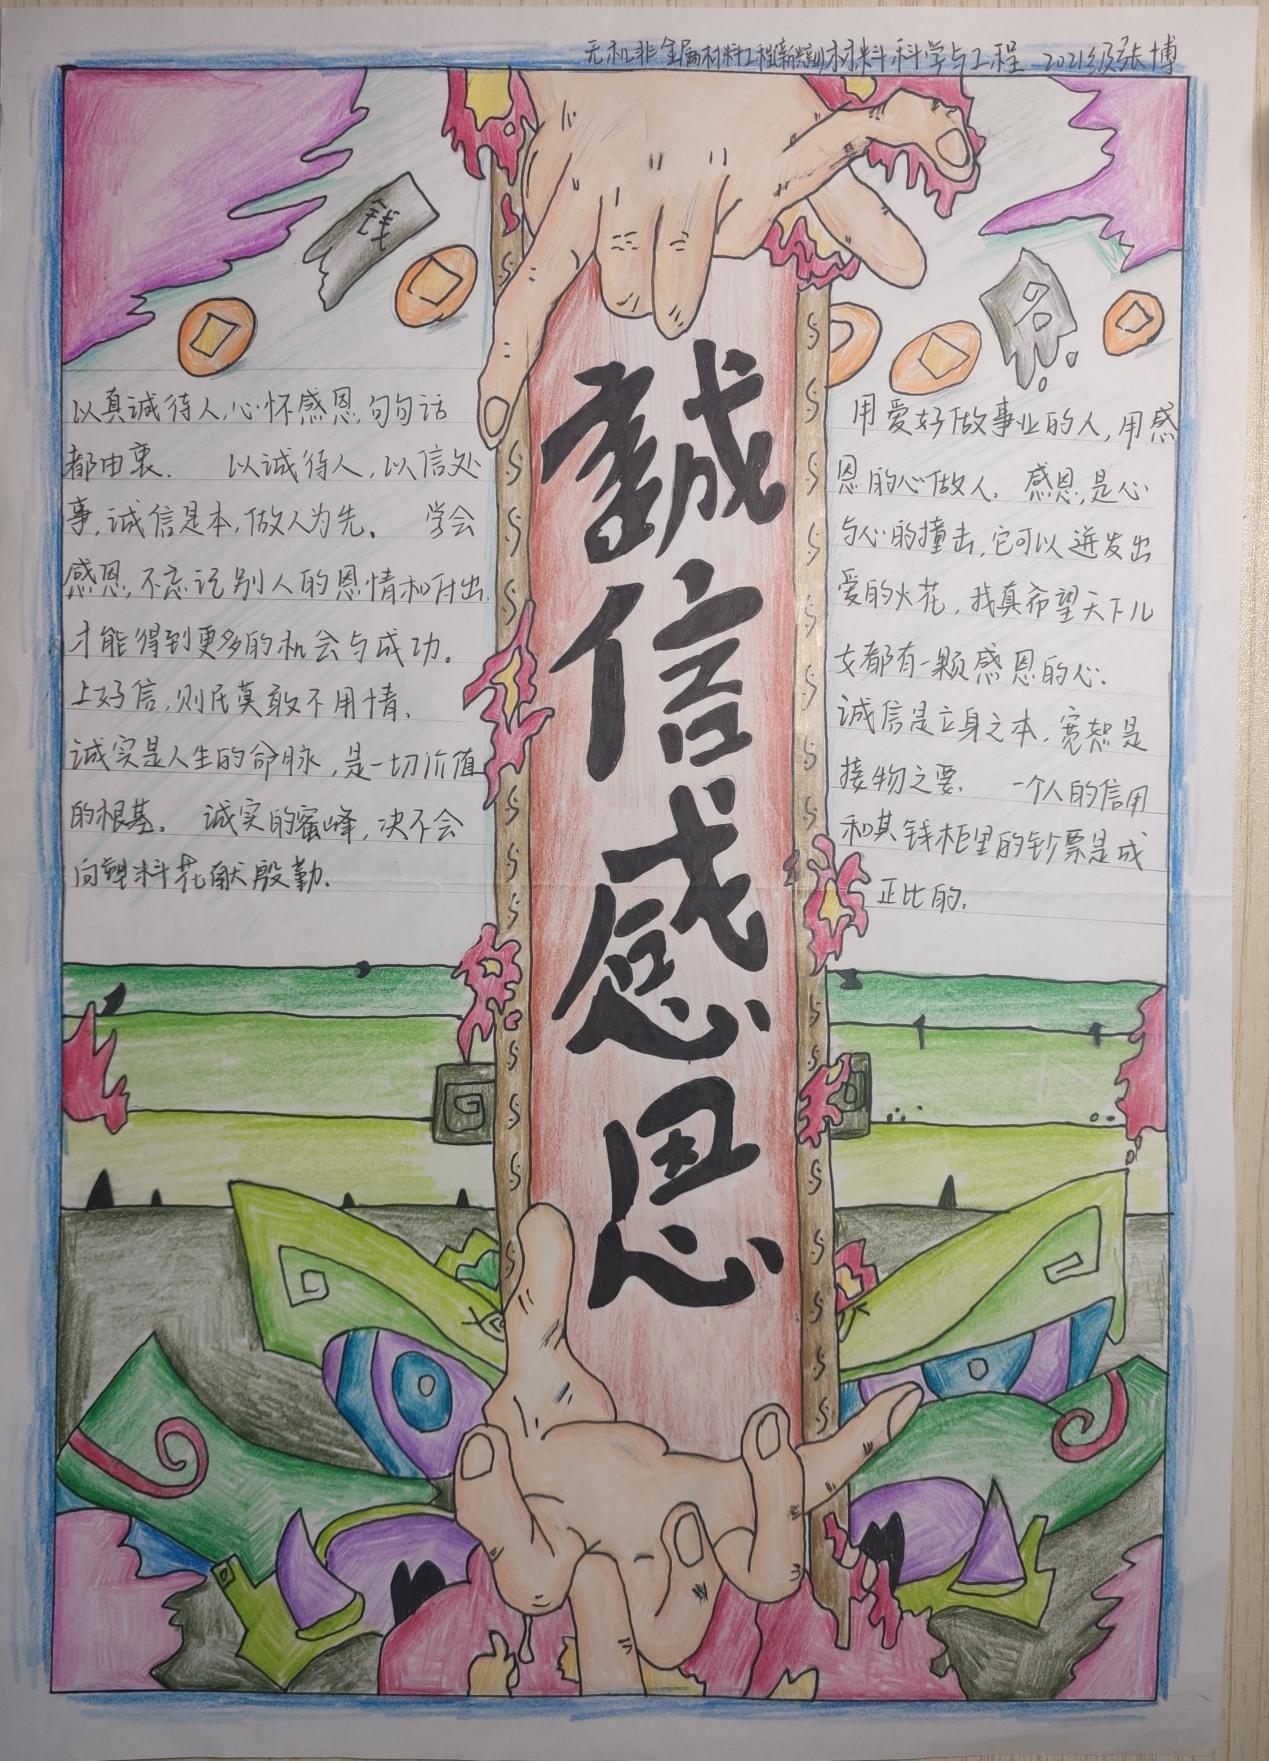 无机非金属材料工程 材料科学与工程 2021级张博
钱
名
誠信感恩
以真诚待人,心怀感恩,句句话
都由衷. 以诚待人,以信处
事,诚信是本,做人为先。 学会
感恩,不忘记别人的恩情和付出
才能得到更多的机会与成功。
上好信,则民莫敢不用情.
诚实是人生的命脉,是一切价值
的根基。 诚实的蜜峰,决不会
向塑料花献殷勤.
用爱好做事业的人,用感
恩的心做人. 感恩,是心
与心的撞击,它可以迸发出
爱的火花,我真希望天下儿
女都有一颗感恩的心.
诚信是立身之本,宽恕是
接物之要. 一个人的信用
和其钱柜里的钞票是成
正比的.